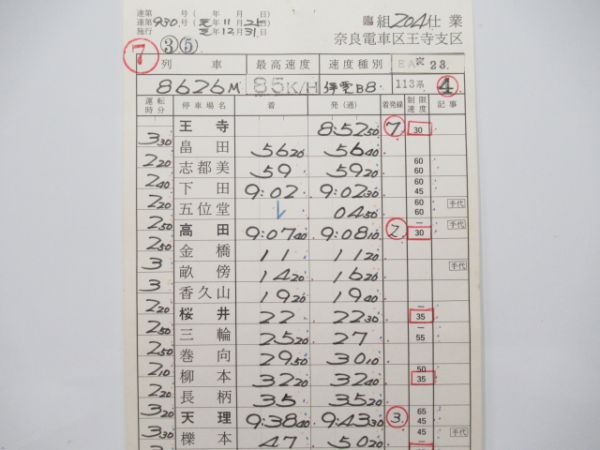 達第 号( 年 月 日)
達第930号(元年11月21日)
施行 元年12月31日
臨 組204仕業
奈良電車区王寺支区
⑦ ③ ⑤
列車 最高速度 速度種別 EA 23.
8626M 85K/H 停電B8 113系 ④
運転時分 停車場名 着 発(通) 着発線 制限速度 記事
王寺 8:52 50 7 30
3 30
畠田 56 20 56 40
2 20
志都美 59 59 20 60 60
2 40
下田 9:02 9:02 30 60 45
2 20
五位堂 レ 04 50 60 60 手代
2 50
高田 9:07 40 9:08 10 2 30 手代
2 50
金橋 11 11 20
3
畝傍 14 20 16 20 手代
3
香久山 19 20 19 40
2 20
桜井 22 22 30 35
2 50
三輪 25 20 27 55
2 50
巻向 29 50 30 10
2 10
柳本 32 20 32 40 50 35
2 20
長柄 35 35 20
3 20
天理 9:38 40 9:43 30 3 65 45
3 30
櫟本 47 50 20 45 手代